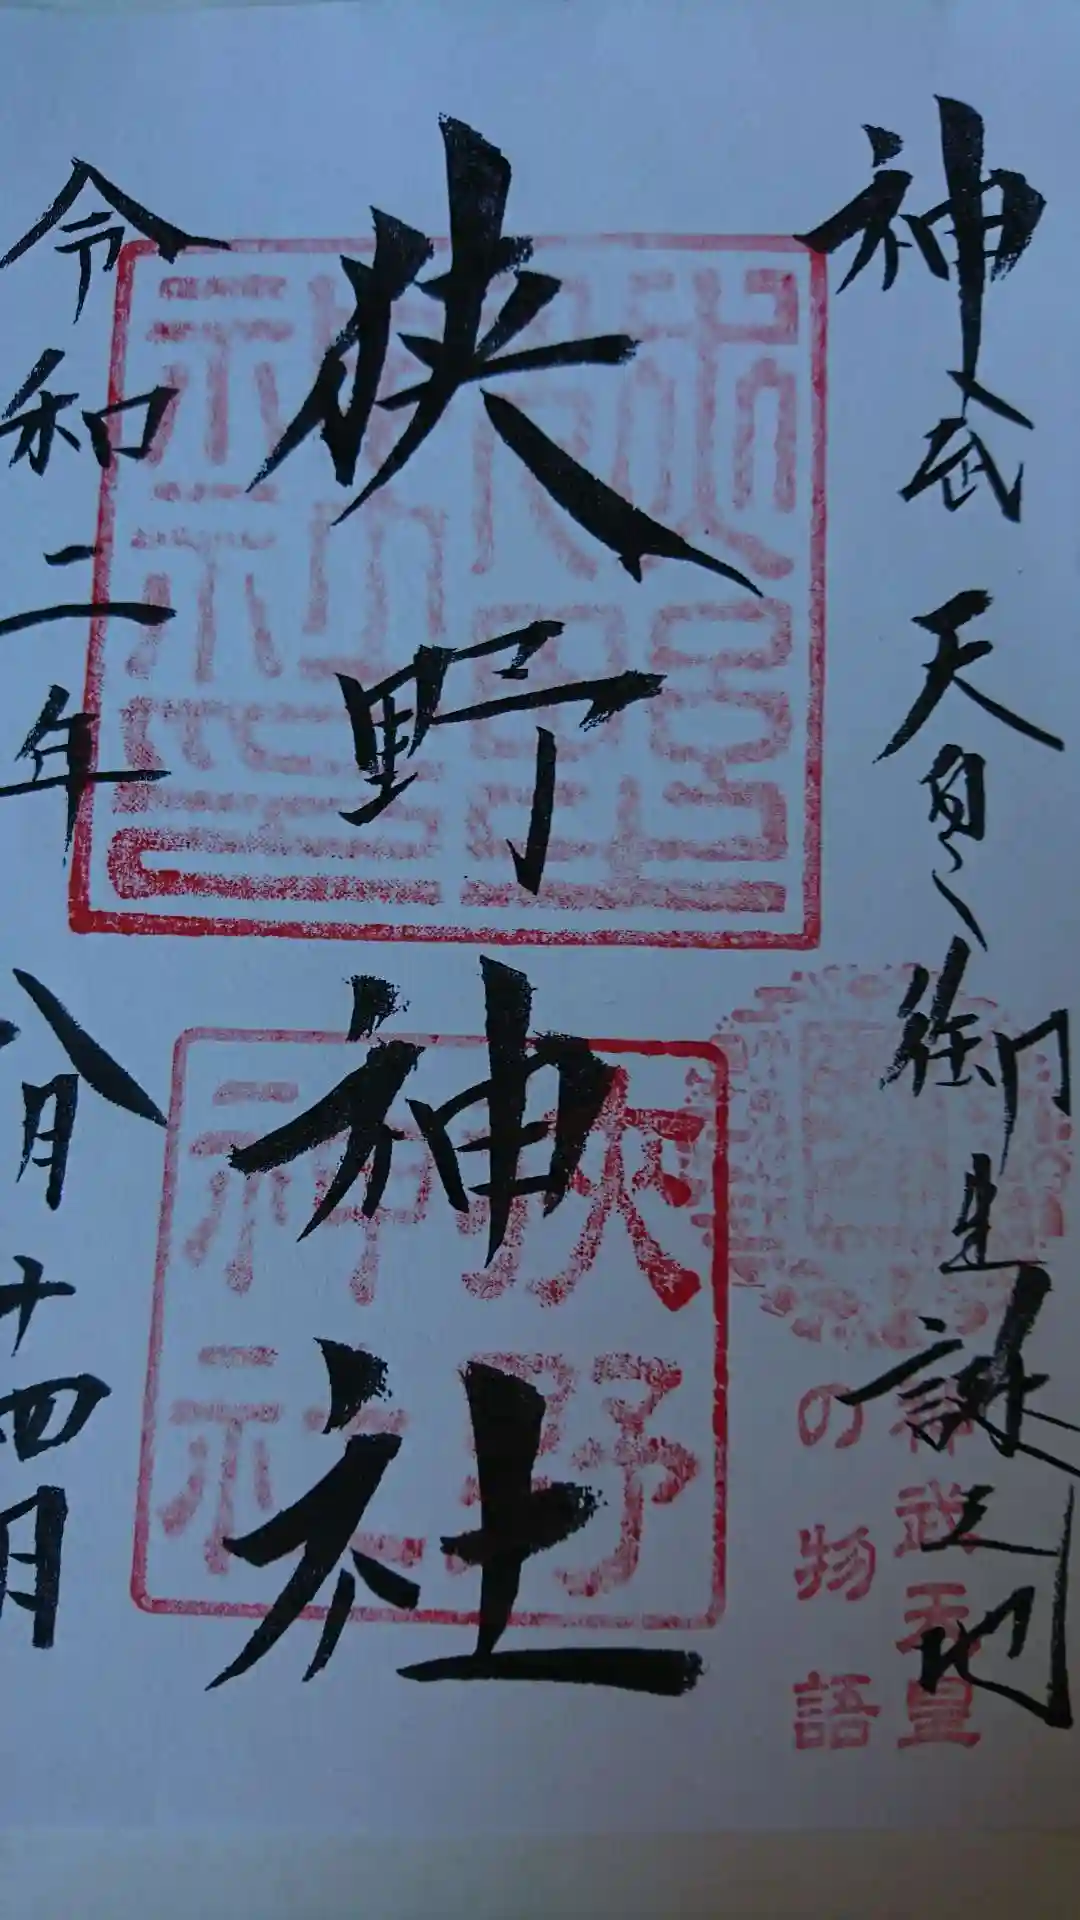 神武天皇御生誕之地
狭野神社
令和二年八月十四月
狭野
神社
神武天皇
の物語